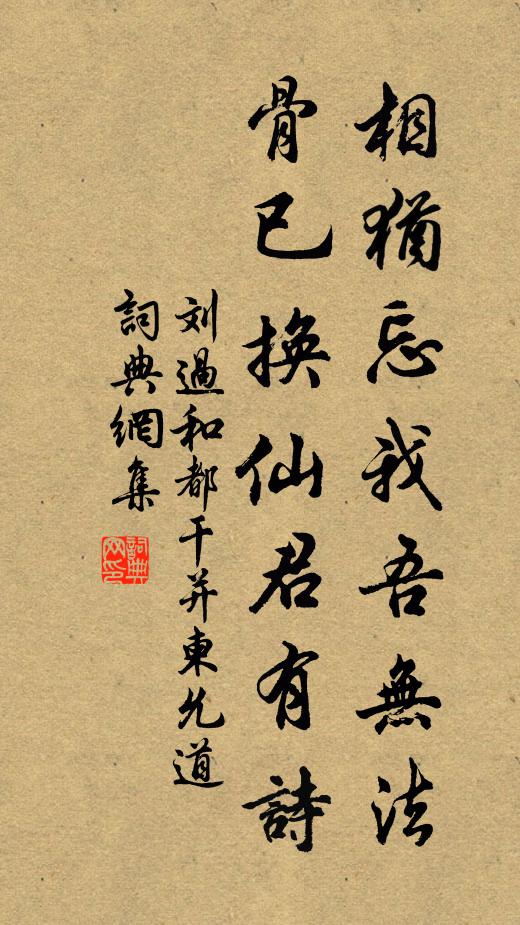 相猶忘我吾無法
骨已換仙君有詩
刘過和都干并東允道
詞典網集
詞典
网印